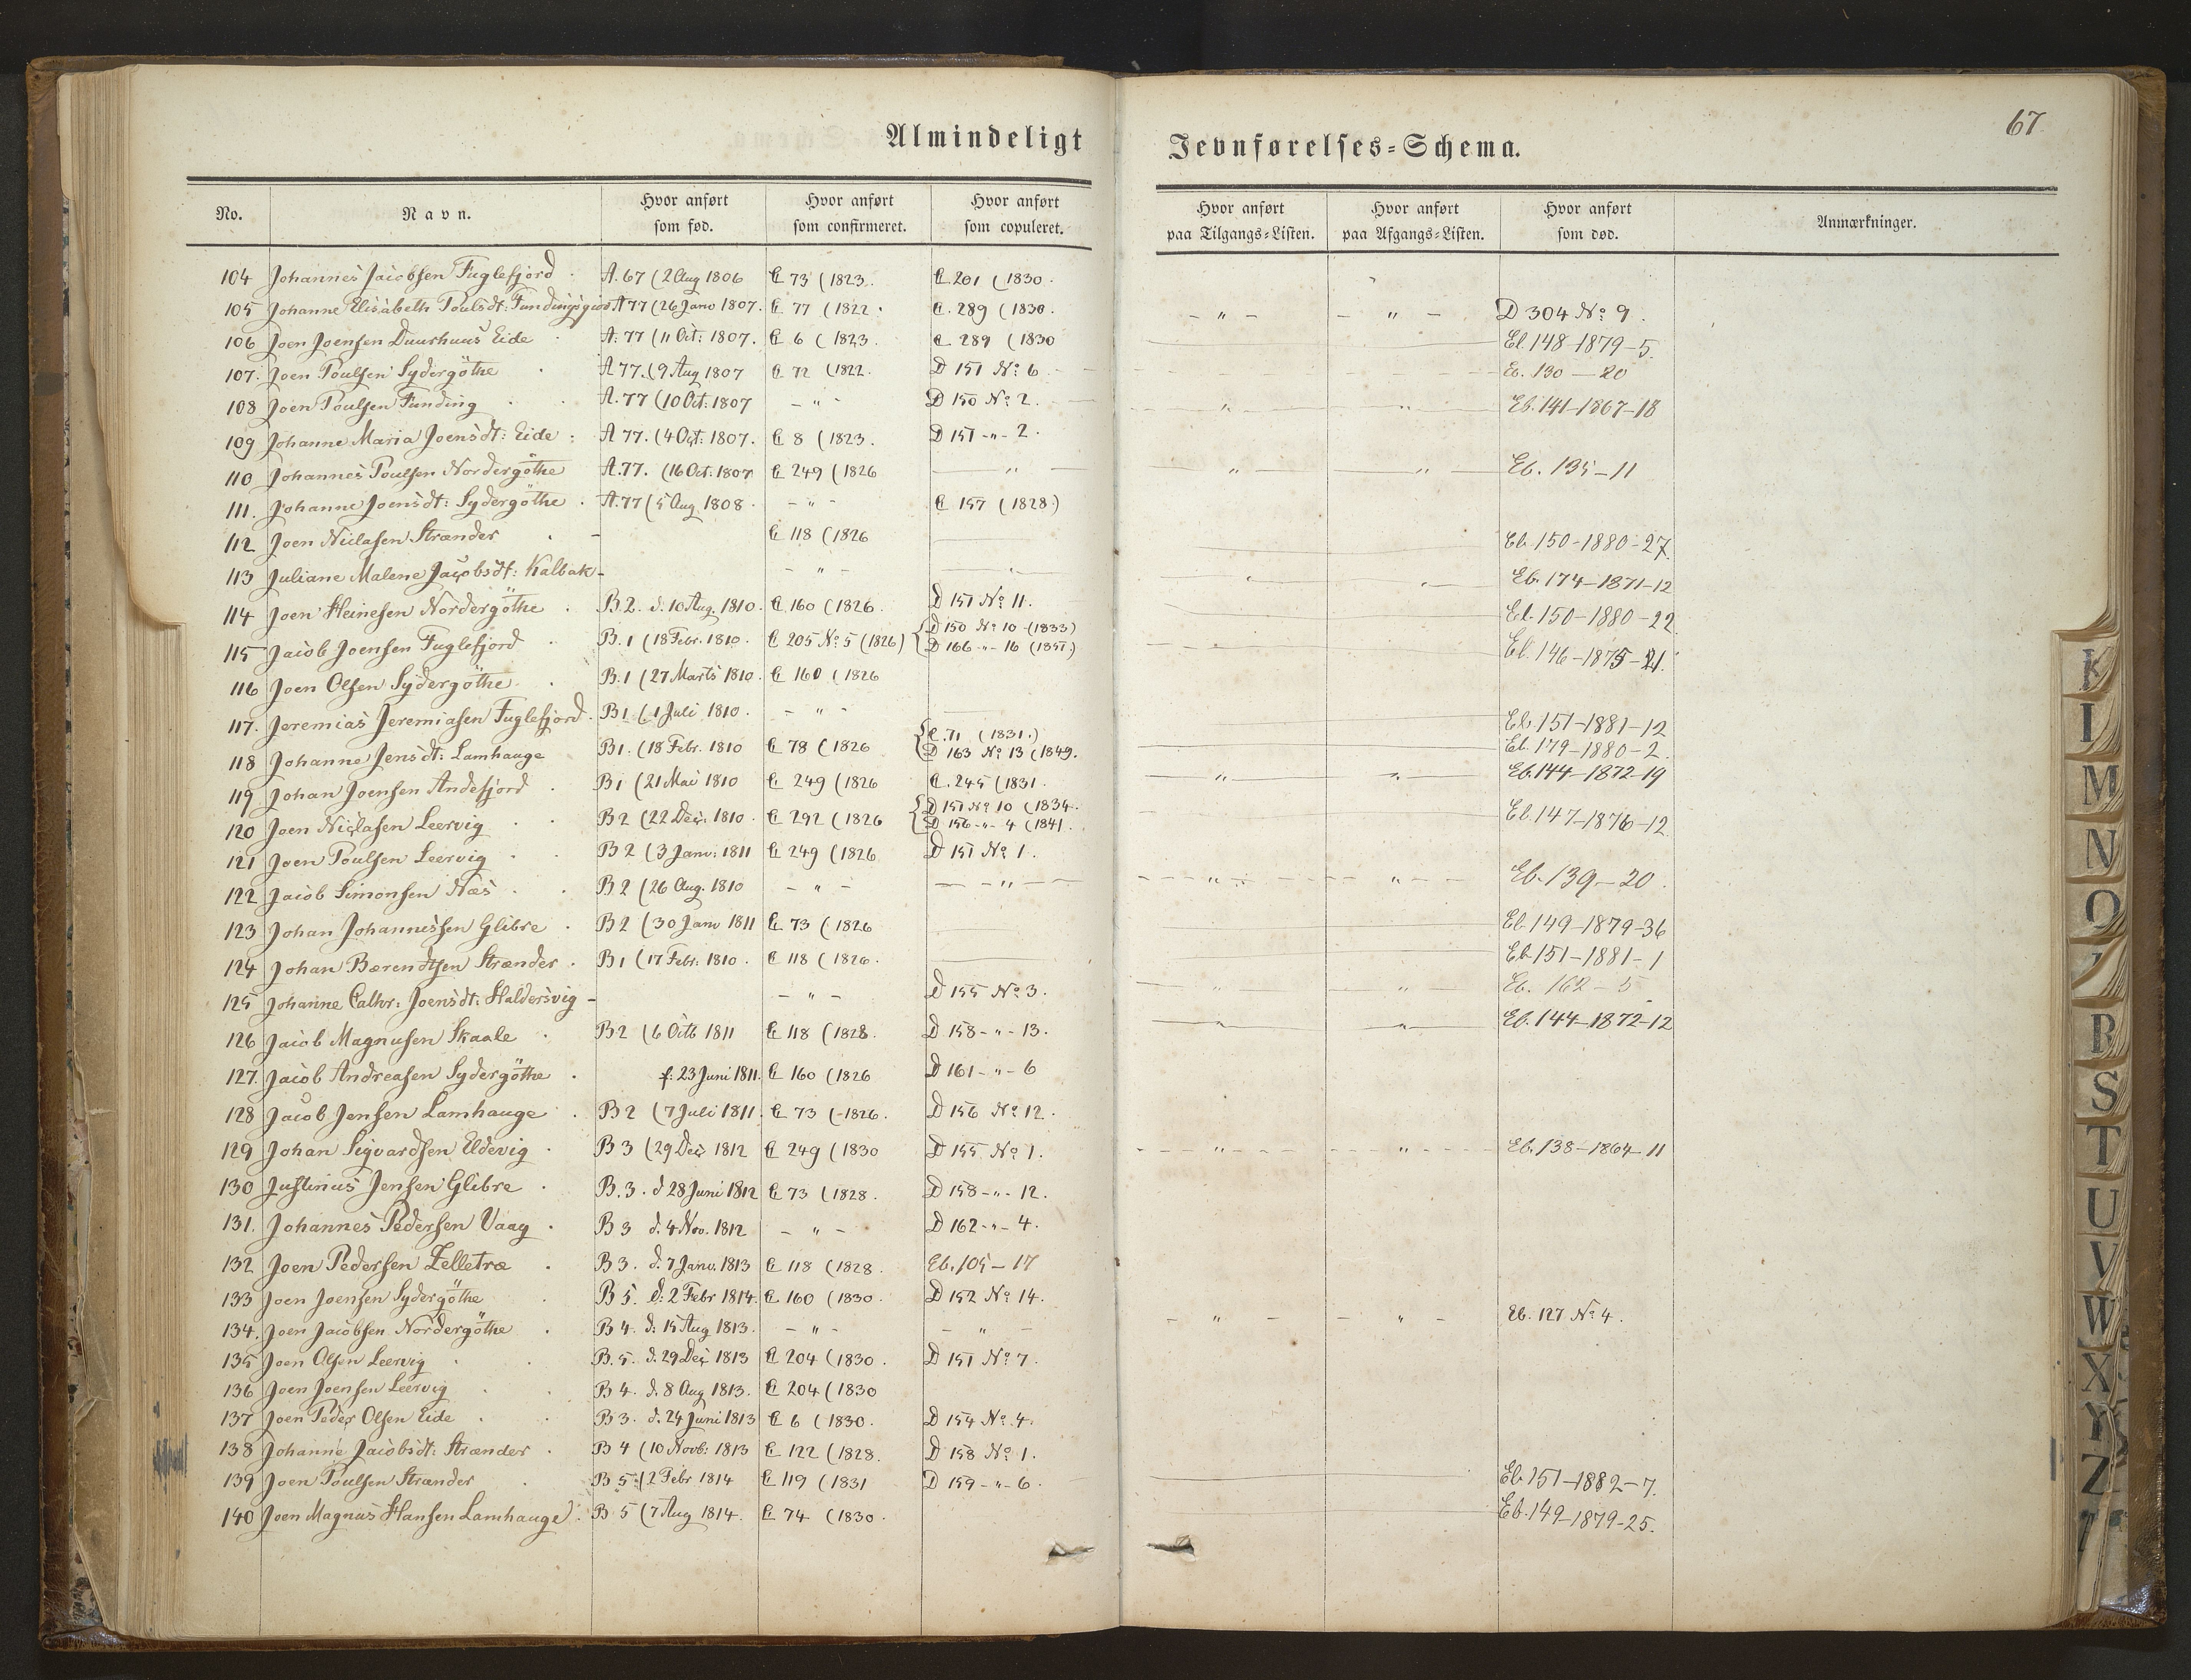 67
Almindeligt Jevnførelses-Schema.
No. Navn. Hvor anført som fød. Hvor anført som confirmeret. Hvor anført som copuleret. Hvor anført paa Tilgangs-Listen. Hvor anført paa Afgangs-Listen. Hvor anført som død. Anmærkninger.
104 Johannes Jacobsen Fuglefjord A. 67 (2 Aug 1806 C 73 (1823. C. 201 (1830.
105 Johanne Elisabeth Poulsdt: Fundingsgiov A 77 (26 Janv 1807. C 77 (1822. C. 289 (1830. - " - - " - D 304 No 9.
106 Joen Joensen Duurhuus Eide A. 77 (11 Oct: 1807. C 6 (1823. C 289 (1830 Eb. 148-1879-5.
107. Joen Poulsen Sydergöthe A 77. (9 Aug 1807 C 72 (1822. D 151 No 6 Eb. 130-20
108 Joen Poulsen Funding A. 77 (10 Oct: 1807 - " - D 150 No 2. " " Eb. 141-1867-18
109 Johanne Maria Joensdt: Eide A 77. (4 Oct: 1807. C 8 (1823. D 151 - " - 2.
110 Johannes Poulsen Nordergöthe A. 77. (16 Oct. 1807 C 249 (1826 " " " Eb. 135-11
111. Johanne Joensdt: Sydergöthe A. 77 (5 Aug 1808. - " - C 157 (1828.)
112 Joen Niclasen Strænder - C 118 (1826 Eb. 150-1880-27.
113 Juliane Malene Jacobsdt: Kalbak - - " - " " " Eb. 174-1871-12
114 Joen Heinesen Nordergöthe B. 2. d. 10 Aug. 1810. C 160 (1826. D 151 No 11. Eb. 150-1880-22
115 Jacob Joensen Fuglefjord B. 1 (18 Febr. 1810. C 205 No 5 (1826) { D 150 No 10 (1833) Eb. 146-1875-21.
D 166 - " - 16 (1851.)
116 Joen Olsen Sydergöthe B. 1 (27 Marts 1810. C 160 (1826
117. Jeremias Jeremiasen Fuglefjord. B 1 (1 Juli 1810. - " - Eb. 151-1881-12
118 Johanne Jensdt: Lamhauge B 1. (18 Febr. 1810 C 78 (1826 { C. 71 (1831.) Eb. 179-1880-2.
D 163 No 13 (1849.
119 Johan Joensen Andefjord B 1 (21 Mai 1810 C 249 (1826 C. 245 (1831. " " Eb. 144-1872-19
120 Joen Niclasen Leervig B 2 (22 Dec: 1810. C 292 (1826 { D 151 No 10 (1834. Eb. 147-1876-12
D 156 - " - 4 (1841.
121 Joen Poulsen Leervig B 2 (3 Janv: 1811 C 249 (1826 D 151 No 1.
122 Jacob Simonsen Næs B 2 (26 Aug. 1810 - " - - " - " " Eb. 139-20.
123 Johan Johannessen Glibre B 2 (30 Janv 1811 C 73 (1826 Eb. 149-1879-36
124 Johan Bærendtsen Strænder B 1 (17 Febr. 1810. C 118 (1826. Eb 151-1881-1
125 Johanne Cathr: Joensdt: Haldersvig - - " - D 155 No 3. " " Eb. 162-5
126 Jacob Magnusen Skaale B 2 (6 Octb 1811 C 118 (1828. D 158 - " - 13. " " Eb. 144-1872-12
127. Jacob Andreasen Sydergöthe f: 23 Juni 1811. C 160 (1826 D 161 - " - 6
128 Jacob Jensen Lamhauge B 2 (7 Juli 1811. C 73 (1826. D 156 No 12.
129 Johan Sigvardsen Eldevig B 3 (29 Dec 1812 C 249 (1830 D 155 No 1. " " Eb. 138-1864-11
130 Justinus Jensen Glibre B. 3. d 28 Juni 1812 C 73 (1828. D 158 - " - 12.
131. Johannes Pedersen Vaag B 3 d. 4 Nov. 1812 - " - D 162 - " - 4.
132 Joen Pedersen Zelletræ B 3. d. 7 Janv. 1813 C 118 (1828. Eb. 105-17
133 Joen Joensen Sydergöthe B 5. d: 2 Febr 1814. C 160 (1830. D 152 No 14.
134. Joen Jacobsen Nordergöthe B 4. d: 15 Aug 1813. - " - - " - - " - - " - Eb. 127 No 4.
135 Joen Olsen Leervig B. 5. d. 29 Dec 1813 C 204 (1830. D 151 No 7.
136 Joen Joensen Leervig B 4. d. 8 Aug 1813. C 204 (1830
137 Joen Peder Olsen Eide B 3. d. 24 Juni 1813 C 6 (1830. D 154 No 4.
138 Johanne Jacobsdt: Strænder B 4 (10 Novb: 1813 C 122 (1828. D 158 No 1.
139 Joen Poulsen Strænder B 5 (2 Febr 1814 C 119 (1831 D 159 - " - 6. Eb. 151-1882-7.
140 Joen Magnus Hansen Lamhauge B 5 (7 Aug 1814. C 74 (1830. Eb. 149-1879-25.
K
I
M
N
O
R
S
T
U
V
W
X
Y
Z